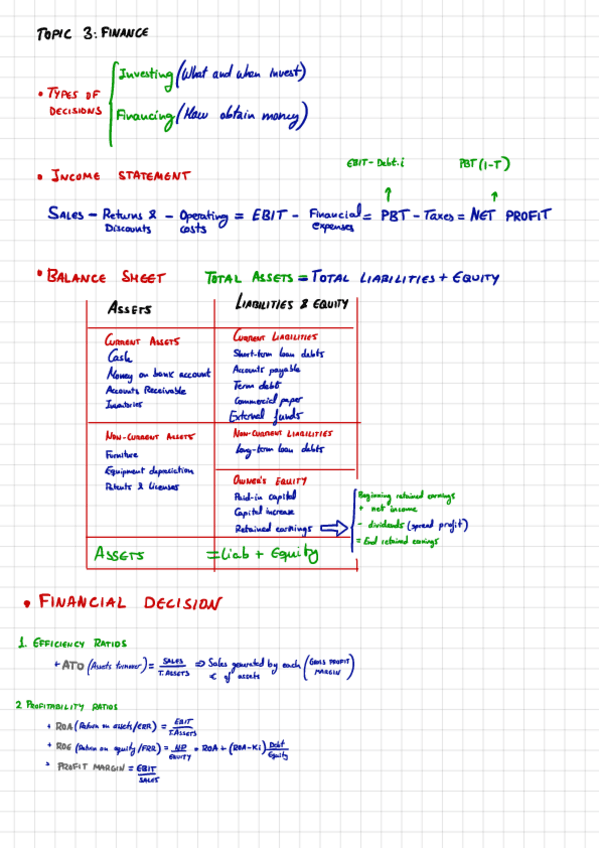 TOPIC 3: FINANCE
Investing (What and when invest)
• TYPES OF
DECISIONS
Financing (How obtain money)
EBIT - Debt.i PBT (1-T)
• INCOME STATEMENT
SALES - Returns & - Operating = EBIT - Financial = PBT - Taxes = NET PROFIT
Discounts costs expenses
• BALANCE SHEET TOTAL ASSETS = TOTAL LIABILITIES + EQUITY
ASSETS
LIABILITIES & EQUITY
CURRENT ASSETS
Cash
Money on bank account
Accounts Receivable
Inventories
CURRENT LIABILITIES
Short-term loan debts
Accounts payable
Term debt
Commercial paper
External funds
NON-CURRENT ASSETS
Furniture
Equipment depreciation
Patents & Licenses
NON-CURRENT LIABILITIES
Long-term loan debts
OWNER'S EQUITY
Paid-in capital
Capital increase
Retained earnings ⇒
Beginning retained earnings
+ net income
- dividends (spread profit)
= End retained earnings
ASSETS = Liab + Equity
• FINANCIAL DECISION
1. EFFICIENCY RATIOS
+ ATO (Assets turnover) = SALES / T. ASSETS ⇒ Sales generated by each € of assets (GROSS PROFIT MARGIN)
2 PROFITABILITY RATIOS
+ ROA (Return on assets/ERR) = EBIT / T. ASSETS
+ ROE (Return on equity/FRR) = NP / EQUITY = ROA + (ROA-Ki) Debt / Equity
+ PROFIT MARGIN = EBIT / SALES